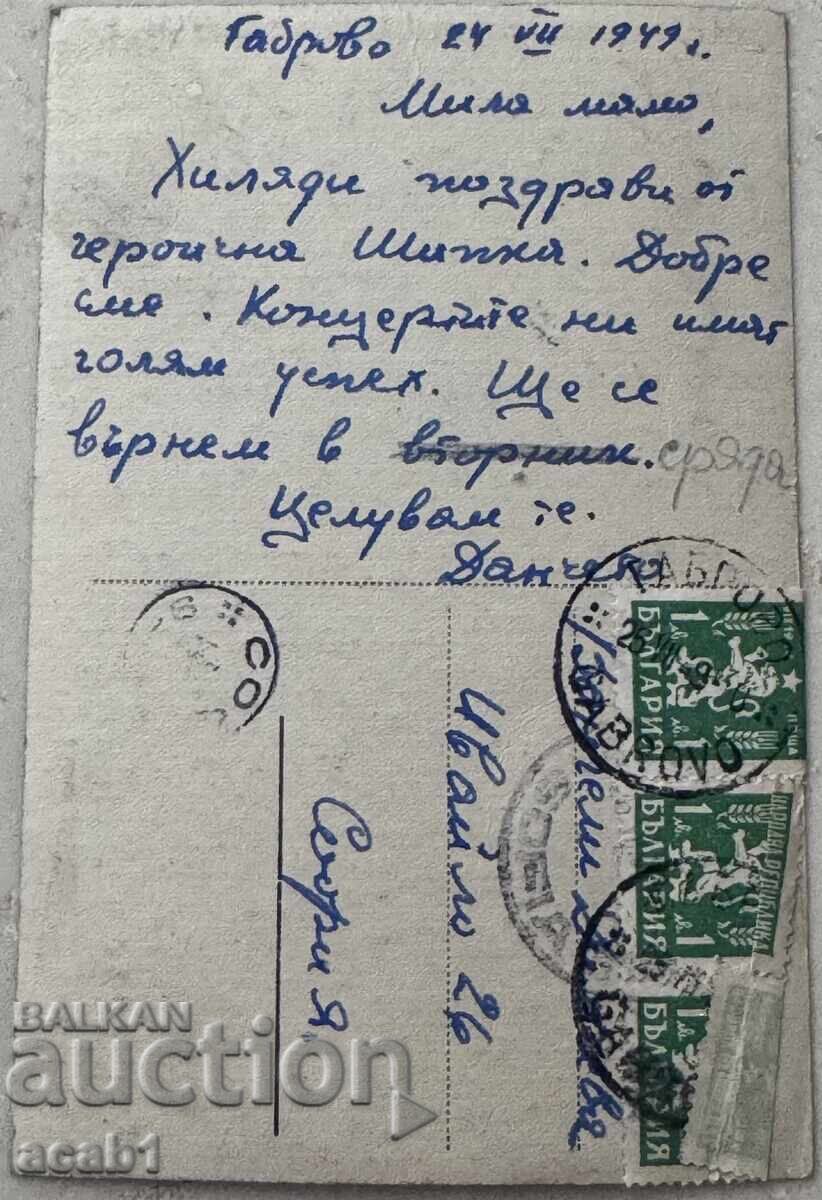 Габрово 24 VII 1949 г.
Мила мамо,
Хиляди поздрави от
героична Шипка. Добре
сме. Концертите ни имат
голям успех. Ще се
върнем в вторник. сряда
Целувам те.
Данчето
ГАБРОВО
GABROVO
1 лв. 1
БЪЛГАРИЯ
ПОЩА
1 лв. 1
БЪЛГАРИЯ
НАРОДНА РЕПУБЛИКА
1 лв.
БЪЛГАРИЯ
SOFIA
СО
Ивайло 26
София
BALKAN
auction
acab1